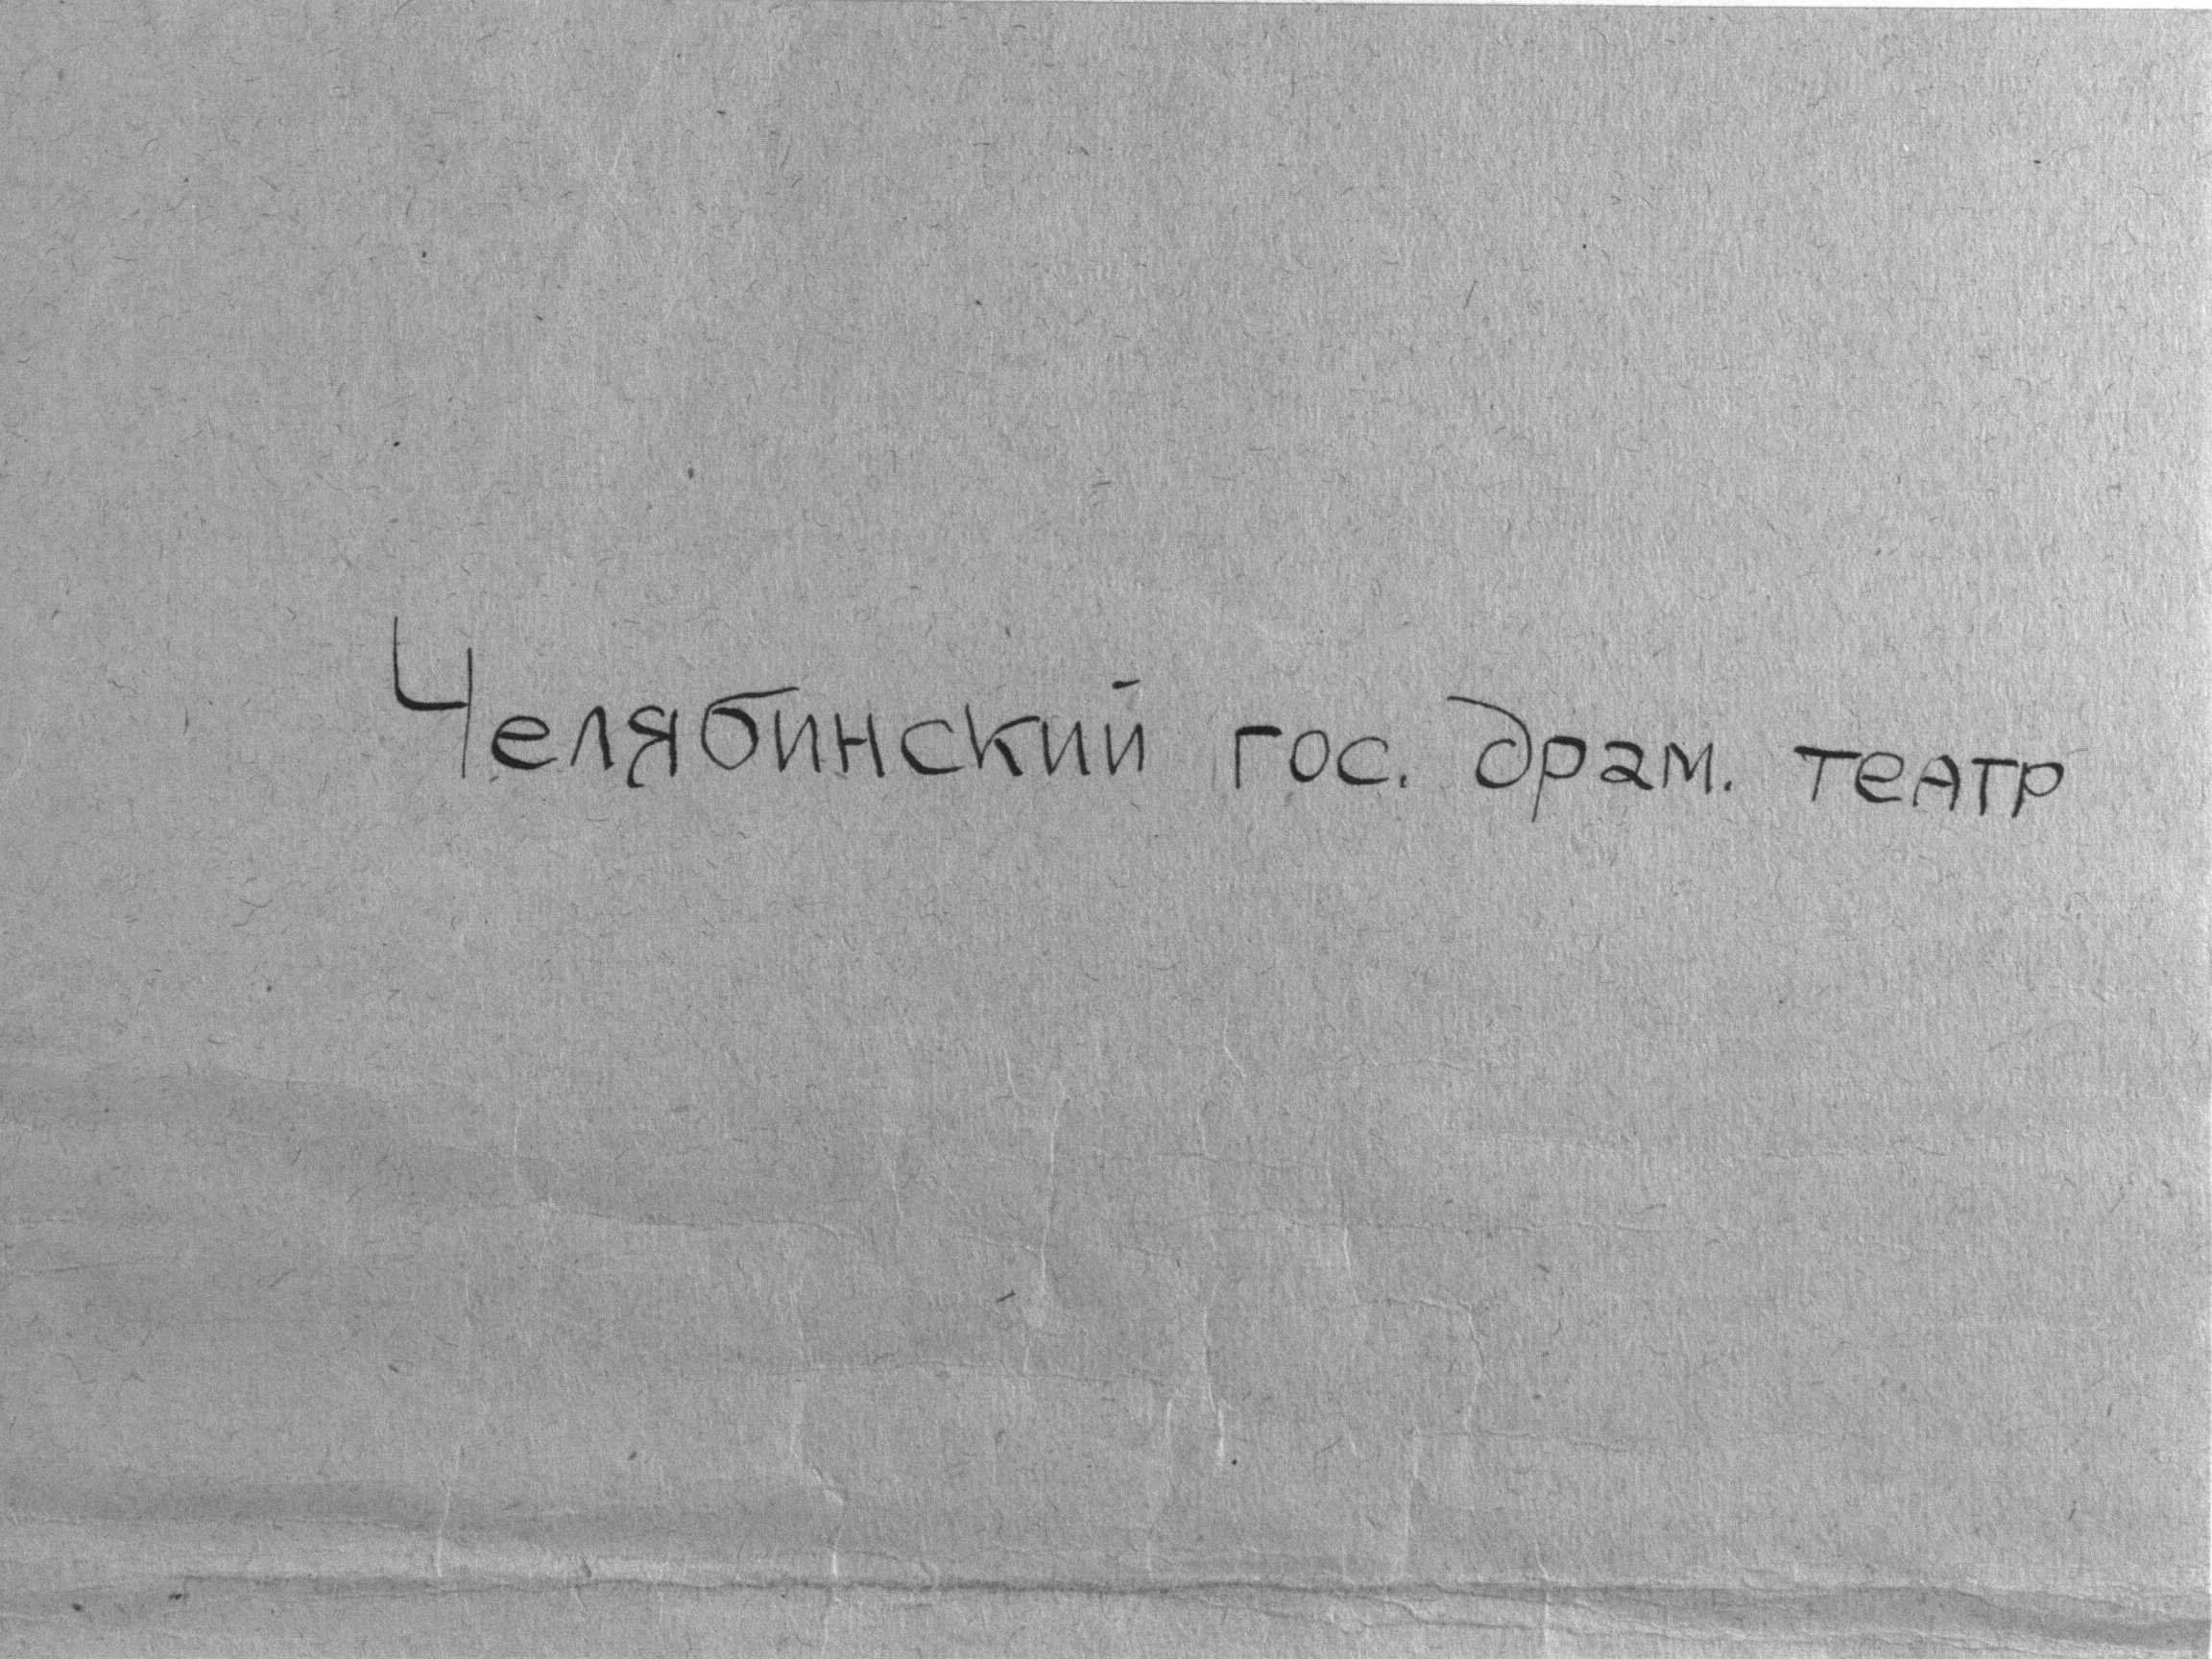 Челябинский гос. драм. театр